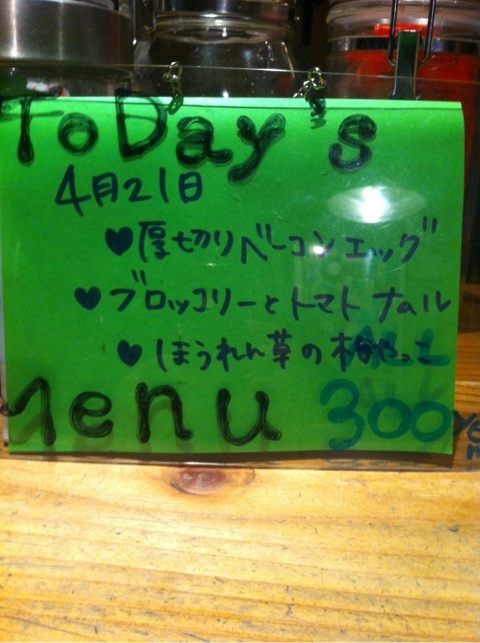 ToDay's
4月21日
♥厚切りベーコンエッグ
♥ブロッコリーとトマト ナムル
♥ほうれん草の梅やっこ
Menu
ALL 300yen